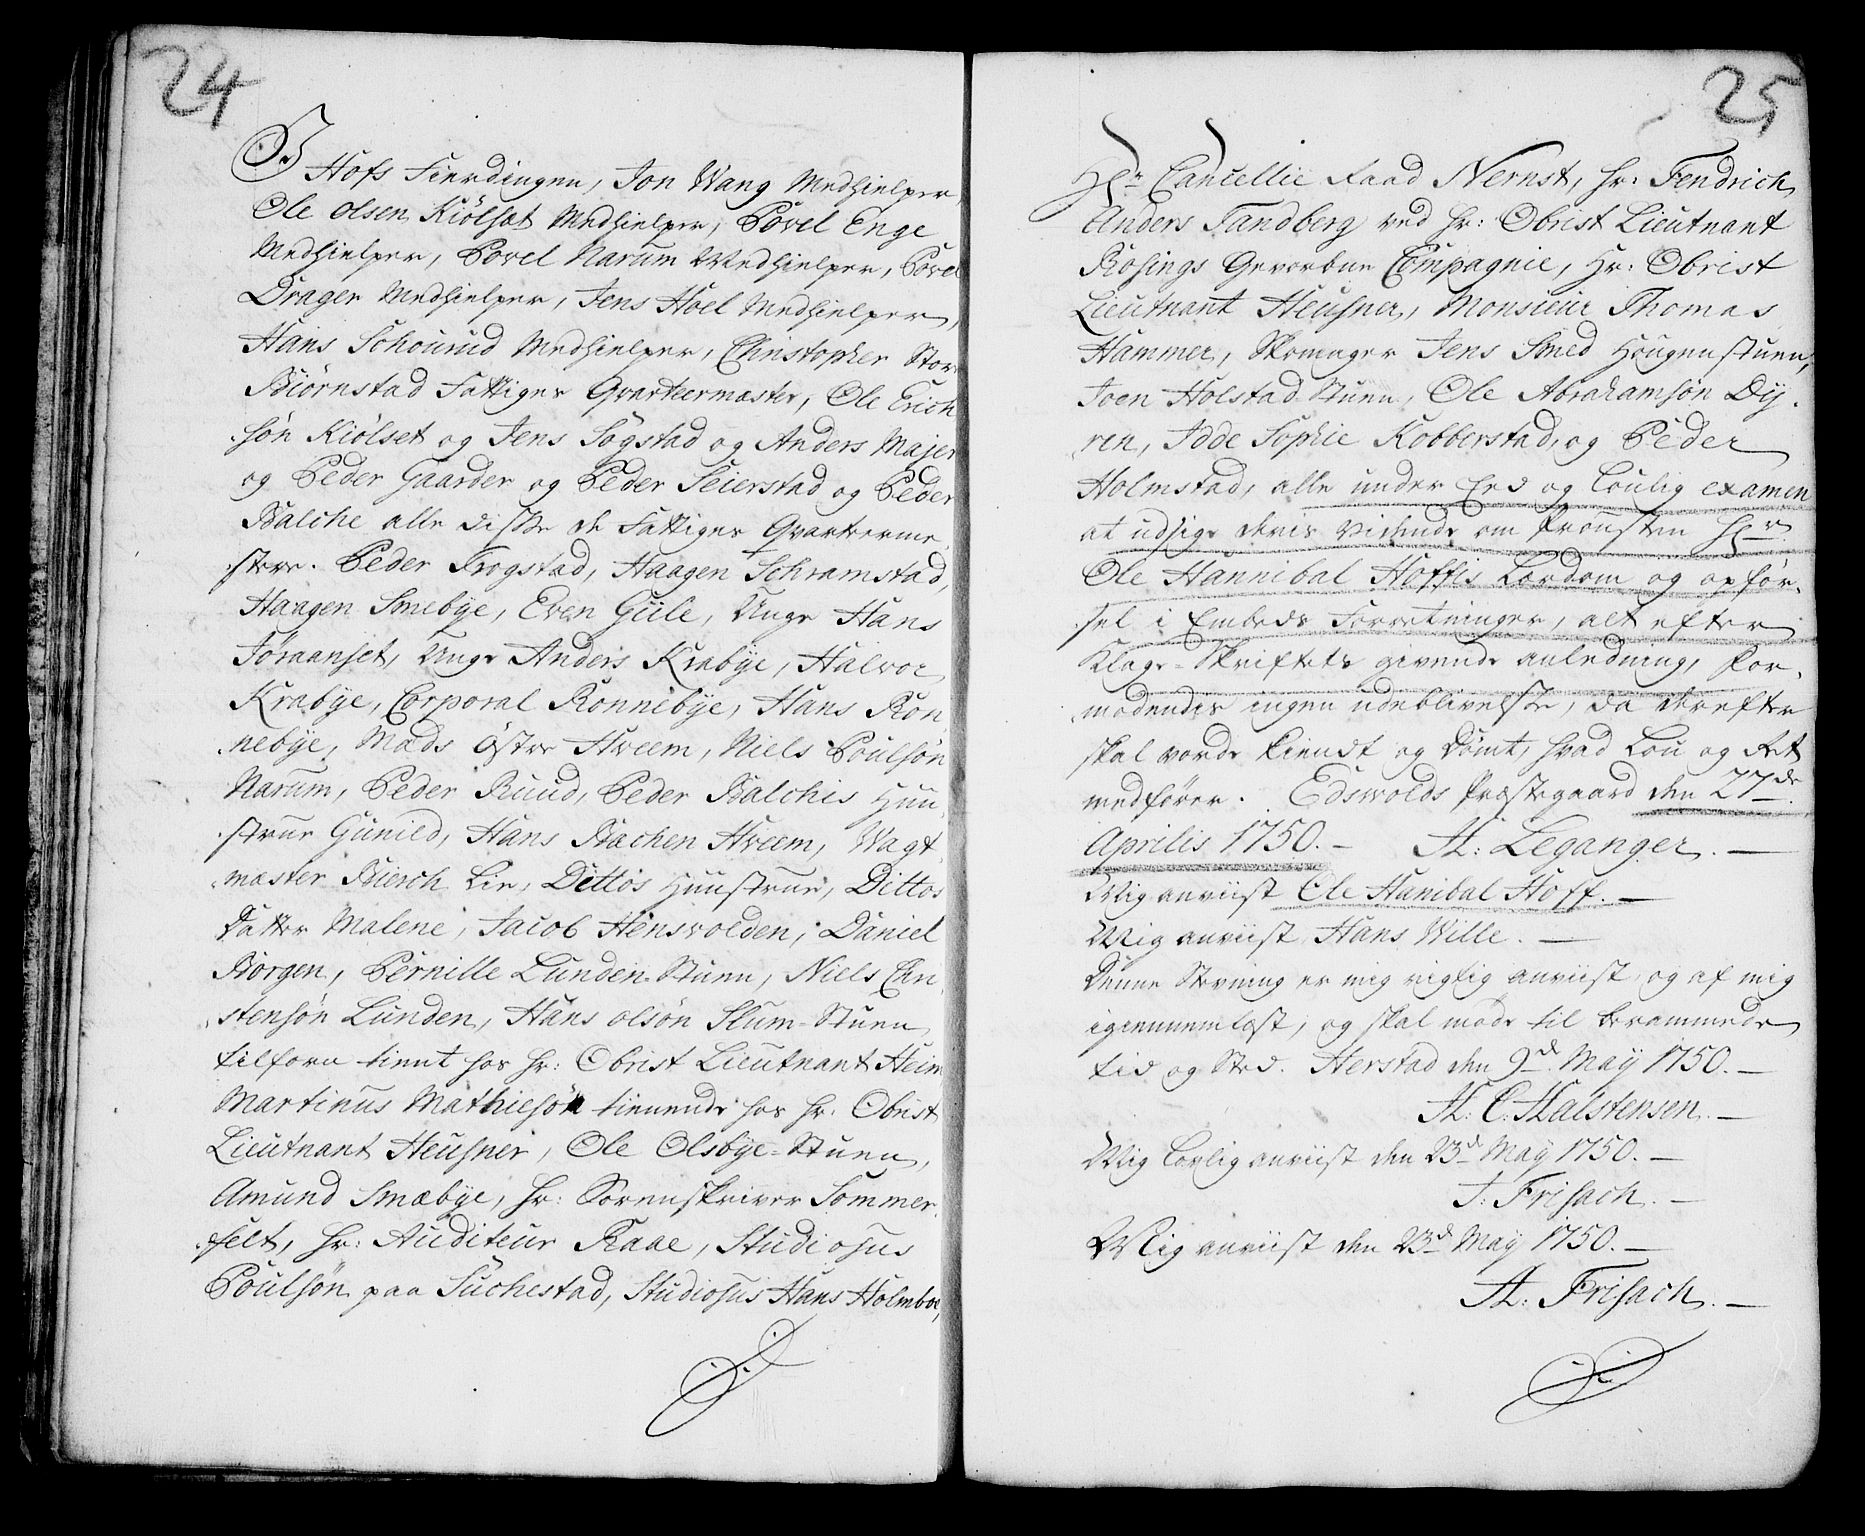 24
I Hofs Fierdingen, Jon Wang Medhielper,
Ole Olsen Kiölset Medhielper, Povel Enge
Medhielper, Povel Narum Medhielper, Povel
Drager Medhielper, Jens Hoel Medhielper,
Hans Schourud Medhielper, Christopher Stor
Biörnstad Fattiges Qvarteermæster, Ole Erich
sön Kiölset og Jens Sögstad og Anders Majer
og Peder Gaarder og Peder Seierstad og Peder
Balche alle disse de Fattiges Qvarteerme
stere. Peder Frogstad, Haagen Schramstad,
Haagen Smebÿe, Even Giile, Unge Hans
Jöraanset, Unge Anders Krabÿe, Halvor
Krabÿe, Corporal Ronnebÿe, Hans Ron
nebÿe, Mads Östre Hveem, Niels Poulsön
Narum, Peder Ruud, Peder Balchis Huu
strue Gunild, Hans Bachen Hveem, Wagt
mæster Bierch Lie, Dittos Huustrue, Dittos
Datter Malene, Jacob Hensvolden, Daniel
Borgen, Pernille Lunden-Stuen, Niels Chri
stensön Lunden, Hans Olsön Slum-Stuen
tilforn tient hos Hr: Obrist Lieutnant Heim
Martinus Mathiesön tienende hos Hr: Obrist
Lieutnant Heusner, Ole Olsbÿe-Stuen,
Amund Smæbÿe, Hr: Sorenskriver Sommer
felt, Hr: Auditeur Raae, Studiosus
Poulsön paa Suchestad, Studiosus Hans Holmboe,
25
Hr Cancellie Raad Nernst, Hr: Fendrich
Anders Tandberg ved Hr: Obrist Lieutnant
Rosings Gevorbne Compagnie, Hr: Obrist
Lieutnant Heusner, Monsieur Thomas
Hammer, Skomager Jens Smed Hougenstuen,
Joen Holstad-Stuen, Ole Abrahamsön Dÿ.
ren, Idde Sophie Kobberstad, og Peder
Holmstad, alle under Eed og Loulig examen
at udsige deris vidende om Prousten Hr
Ole Hannibal Hoffis Lærdom og opför.
sel i Embeds Forretninger, alt efter
Klage-Skriftets givende anledning, For.
modendes ingen udeblivelse, da derefter
skal vorde kiendt og dömt, hvad Lou og Ret
medförer. Edswolds Præstegaard den 27de
Aprilis 1750.- H: Leganger. —
Mig anviist Ole Hanibal Hoff. —
Mig anviist, Hans Wille. —
Denne Stevning er mig rigtig anviist, og af mig
igiennemlæst, og skal möde til berammede
tid og Sted. Herstad den 9d May 1750. —
H: C: Halstensen. —
Mig Lovlig anviist den 23d May 1750. —
J: Frisach. —
Mig anviist den 23d May 1750. —
H: Frisach. —